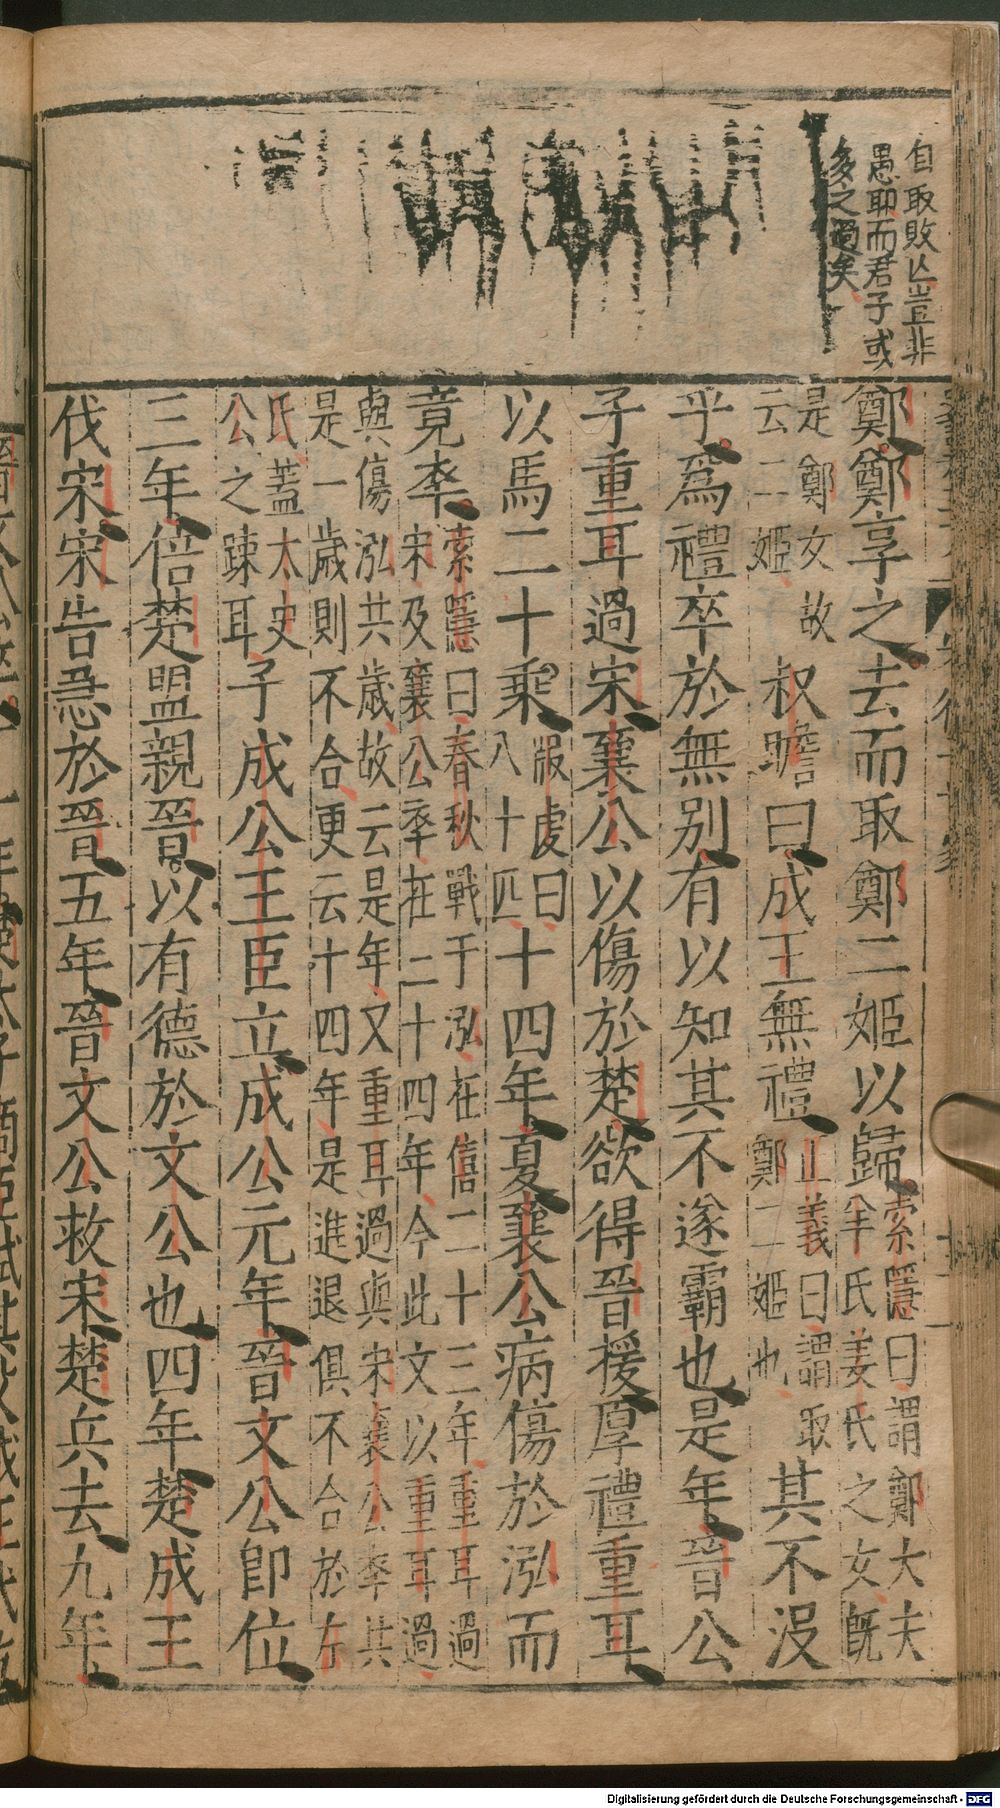 自取敗亾豈非
愚耶而君子或
多之過矣
鄭鄭享之去而取鄭二姬以歸索隱曰謂鄭大夫
羋氏姜氏之女既
是鄭女故
云二姬叔瞻曰成王無禮正義曰謂取
鄭二姬也其不没
乎爲禮卒於無別有以知其不遂霸也是年晉公
子重耳過宋襄公以傷於楚欲得晉援厚禮重耳
以馬二十乘服虔曰
八十匹十四年夏襄公病傷於泓而
竟卒索隱曰春秋戰于泓在僖二十三年重耳過
宋及襄公卒在二十四年今此文以重耳過
與傷泓共歲故云是年又重耳過與宋襄公卒共
是一歲則不合更云十四年是進退俱不合於左
氏蓋太史
公之疎耳子成公王臣立成公元年晉文公卽位
三年倍楚盟親晉以有德於文公也四年楚成王
伐宋宋告急於晉五年晉文公救宋楚兵去九年
Digitalisierung gefördert durch die Deutsche Forschungsgemeinschaft - DFG